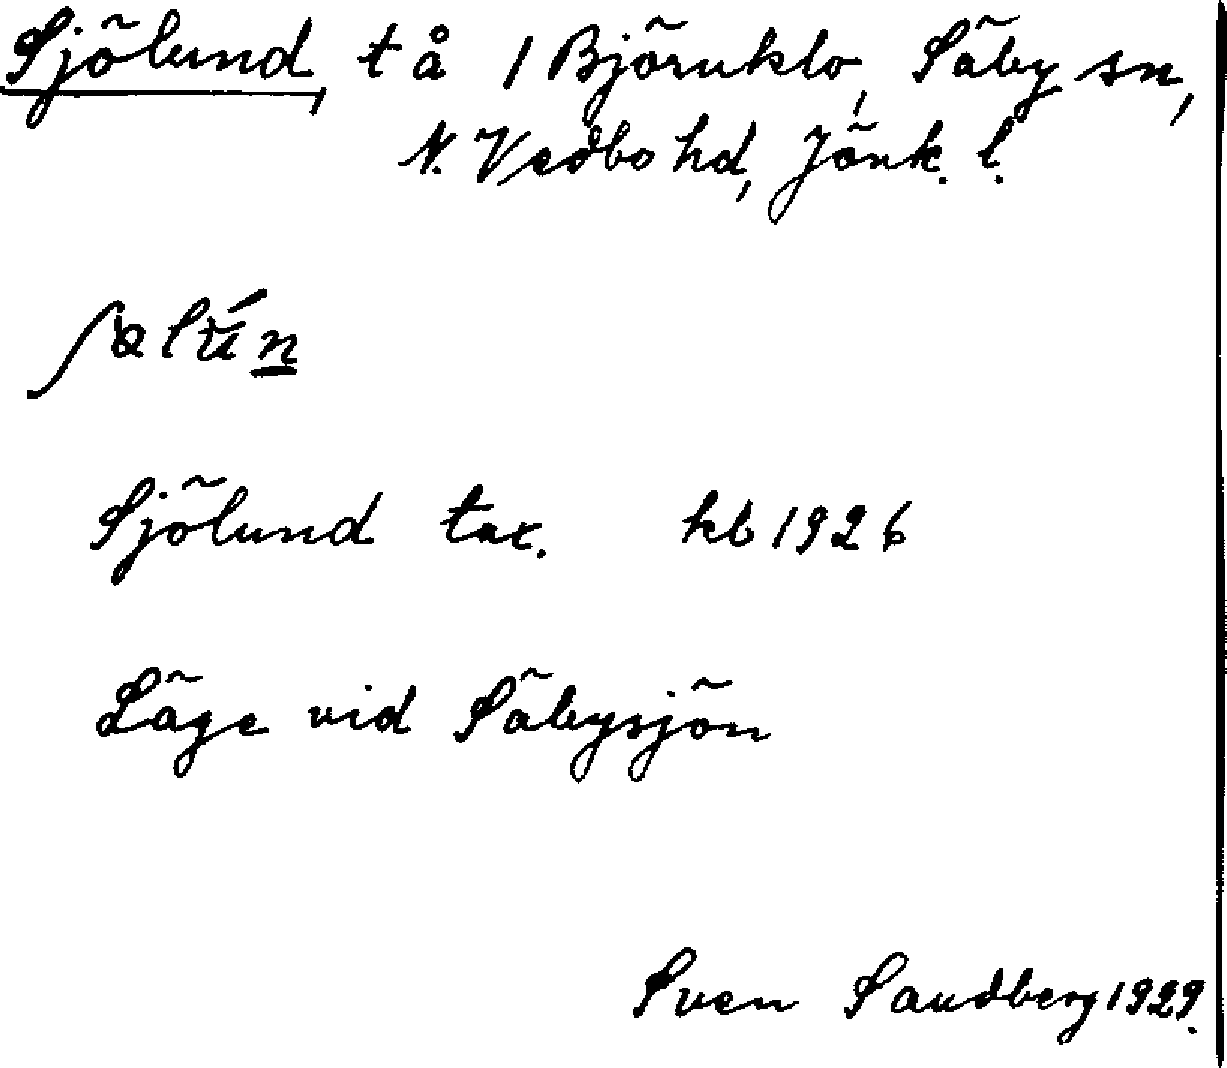 Sjölund, t å 1 Björnklo, Säby sn,
N. Vedbo hd, Jönk. l.
Sjölund tax. kb 1926
Läge vid Säbysjön
Sven Sandberg 1929.